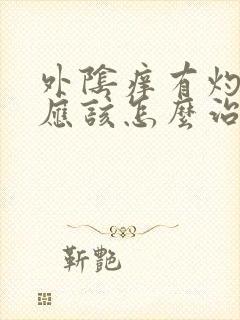 外陰痒有灼
應該怎麼治
靳艷